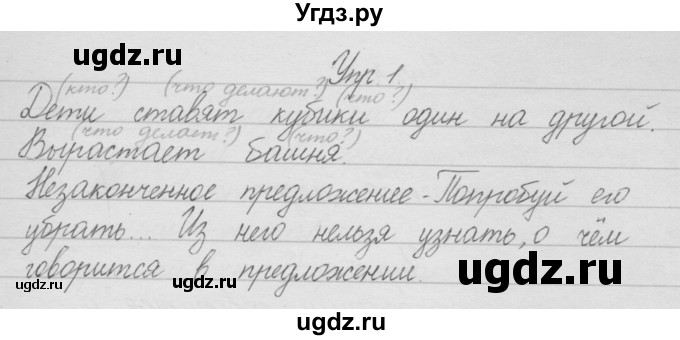 Угдз.ру
Упр 1.
(кто?) (что делают?) (что?)
Дети ставят кубики один на другой.
(что делает?) (что?)
Вырастает башня.
Незаконченное предложение - Попробуй его
убрать... Из него нельзя узнать, о чём
говорится в предложении.
ugdz.ru
ugdz.ru
ugdz.ru
ugdz.ru
ugdz.ru
ugdz.ru
ugdz.ru